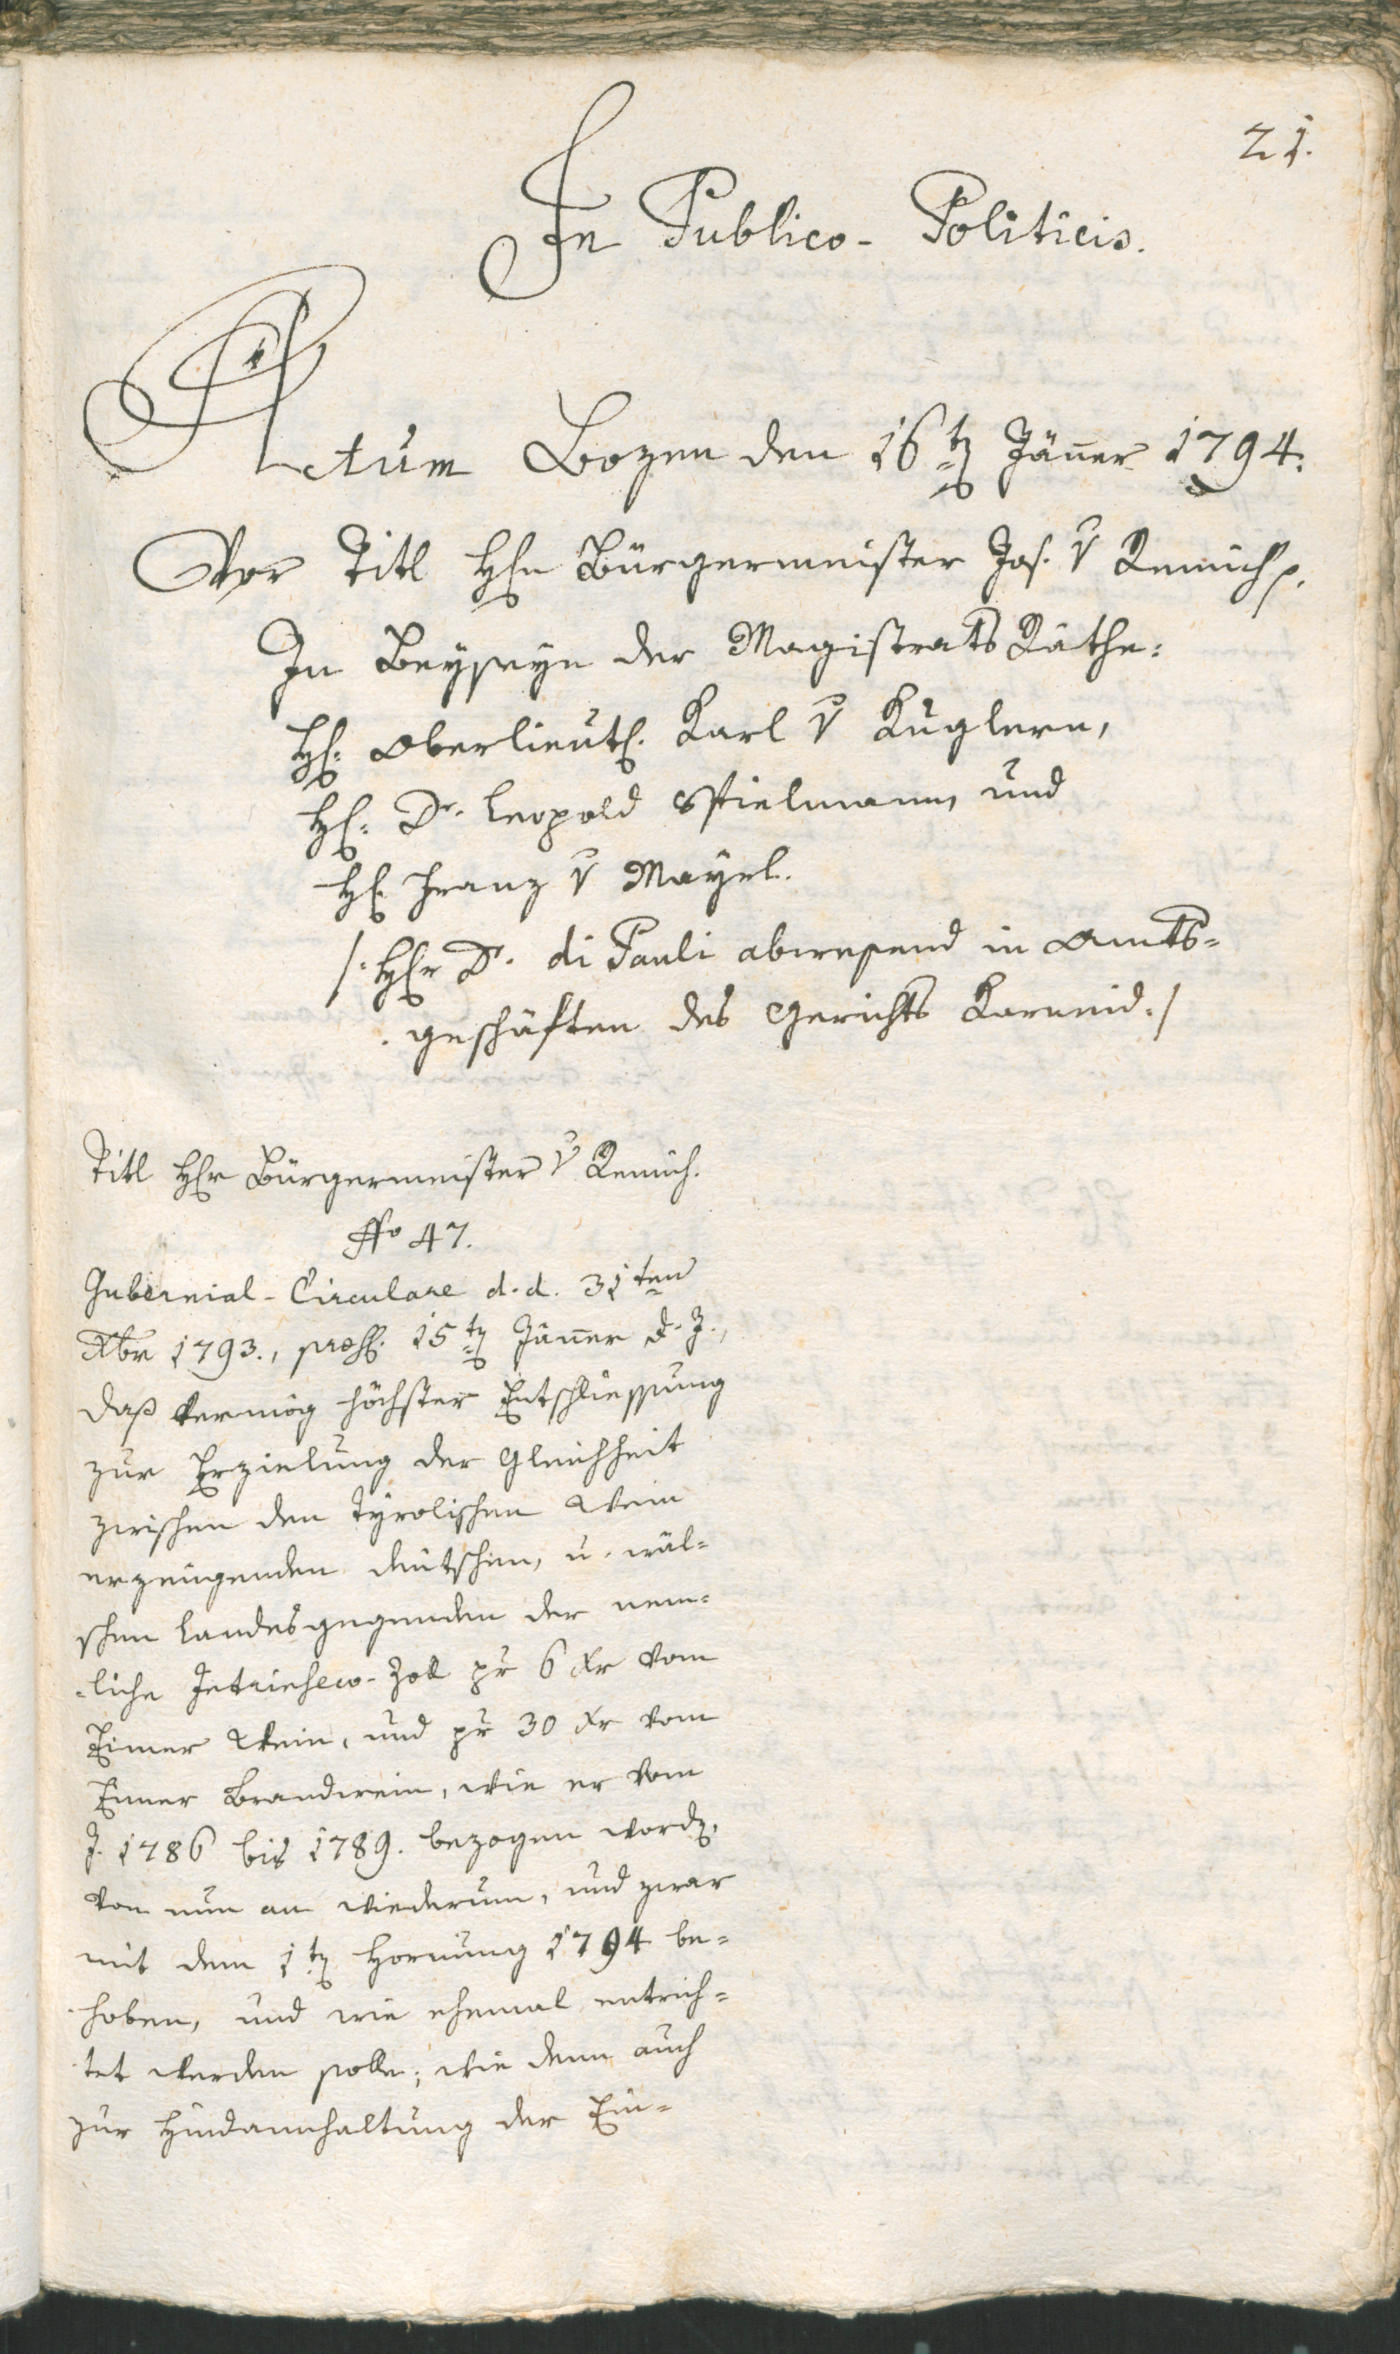 21.
In Publico- Politicis.
Actum Bozen den 16tn Jäner 1794.
Vor Titl Hhn Bürgermeister Jos. v Remich p.
In Beyseyn der Magistrats Räthe:
Hh: Oberlieut. Karl v Kuglern,
Hh: Dr. Leopold Spielmann, und
Hh Franz v Mayrl.
/: Hhr Dr. di Pauli abwesend in Amts=
geschäften des Gerichts Karneid. /
Titl Hhr Bürgermeister v Remich.
No 47.
Gubernial-Circulare d. d. 31ten
Xbr 1793., praes. 15tn Jäner d. J.,
daß vermög höchster Entschliessung
zur Erzielung der Gleichheit
zwischen den Tyrolischen Wein
erzeugenden deutschen, u. wäl=
schen Landesgegenden der nem=
liche Intrinseco-Zoll pr 6 Xr vom
Eimer Wein, und pr 30 Xr vom
Eimer Brandwein, wie er vom
J. 1786 bis 1789. bezogen wordn,
von nun an wiederum, und zwar
mit dem 1tn Hornung 1794 be=
hoben, und wie ehemal entrich=
tet werden solle; wie denn auch
zur Hindannhaltung der Ein=